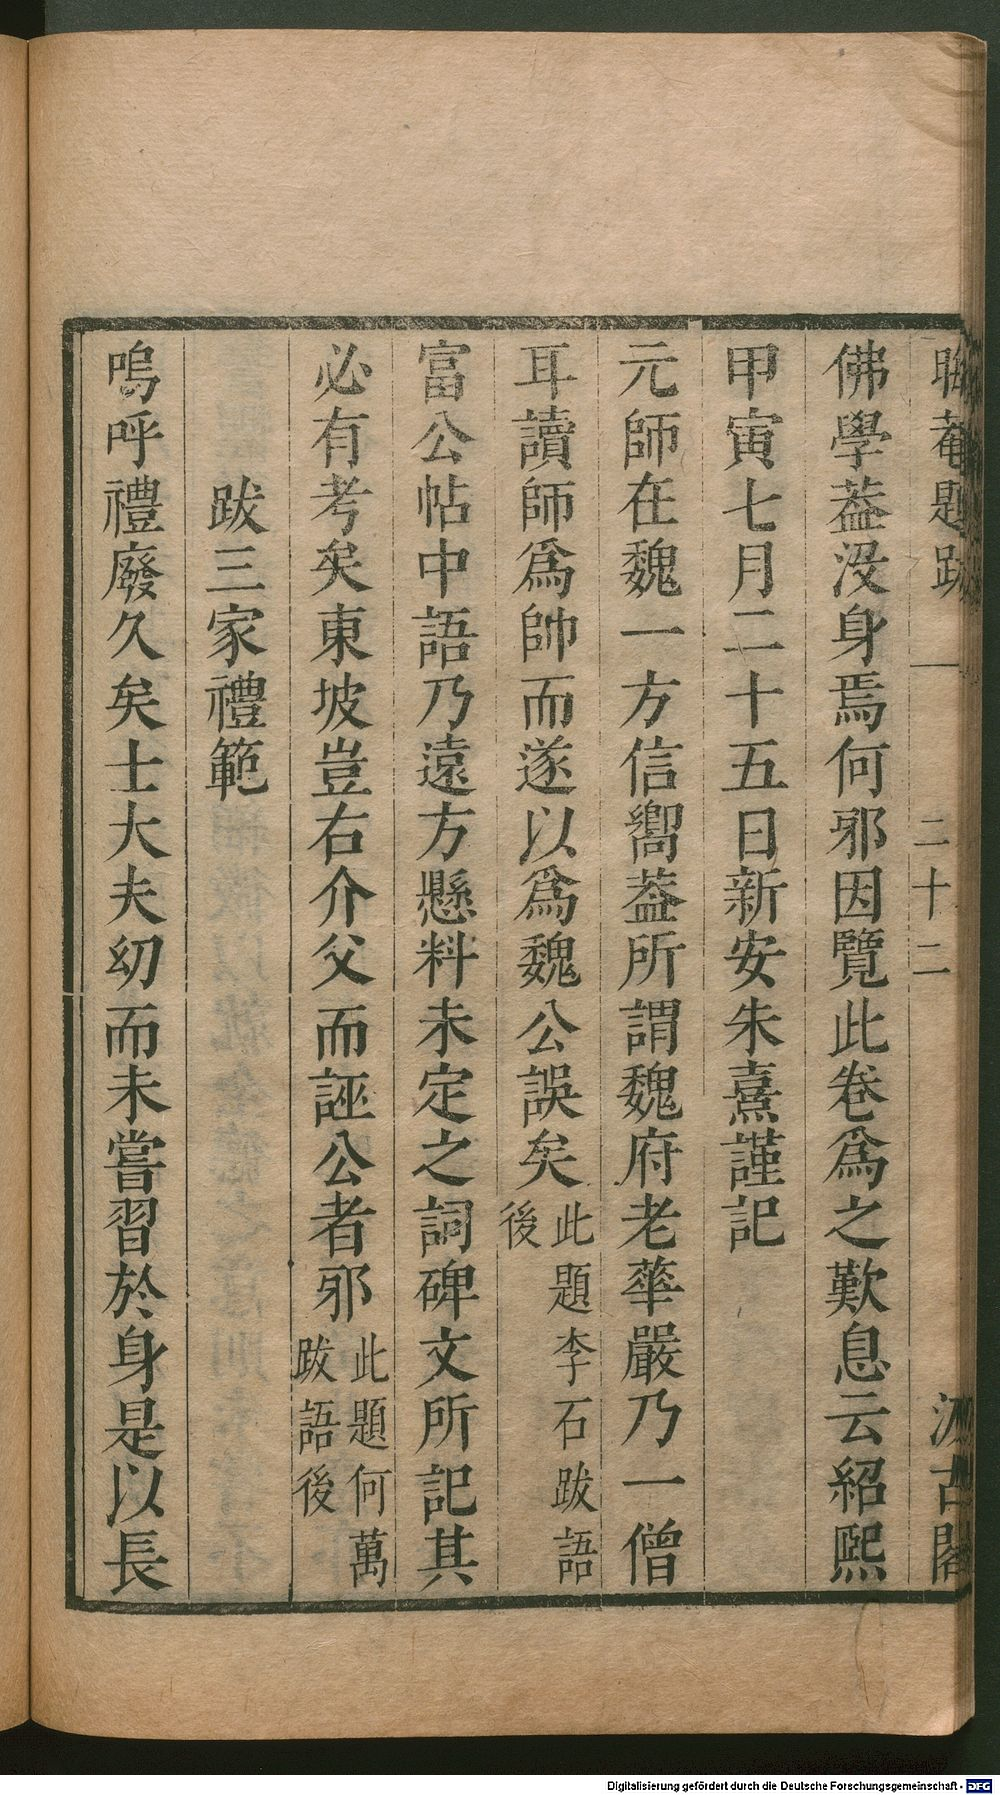 晦菴題跋 一 二十二 汲古閣
佛學葢没身焉何邪因覽此卷爲之歎息云紹熙
甲寅七月二十五日新安朱熹謹記
元師在魏一方信嚮葢所謂魏府老華嚴乃一僧
耳讀師爲帥而遂以爲魏公誤矣此題李石跋語後
富公帖中語乃遠方懸料未定之詞碑文所記其
必有考矣東坡豈右介父而誣公者邪此題何萬跋語後
跋三家禮範
嗚呼禮廢久矣士大夫幼而未嘗習於身是以長
Digitalisierung gefördert durch die Deutsche Forschungsgemeinschaft - DFG